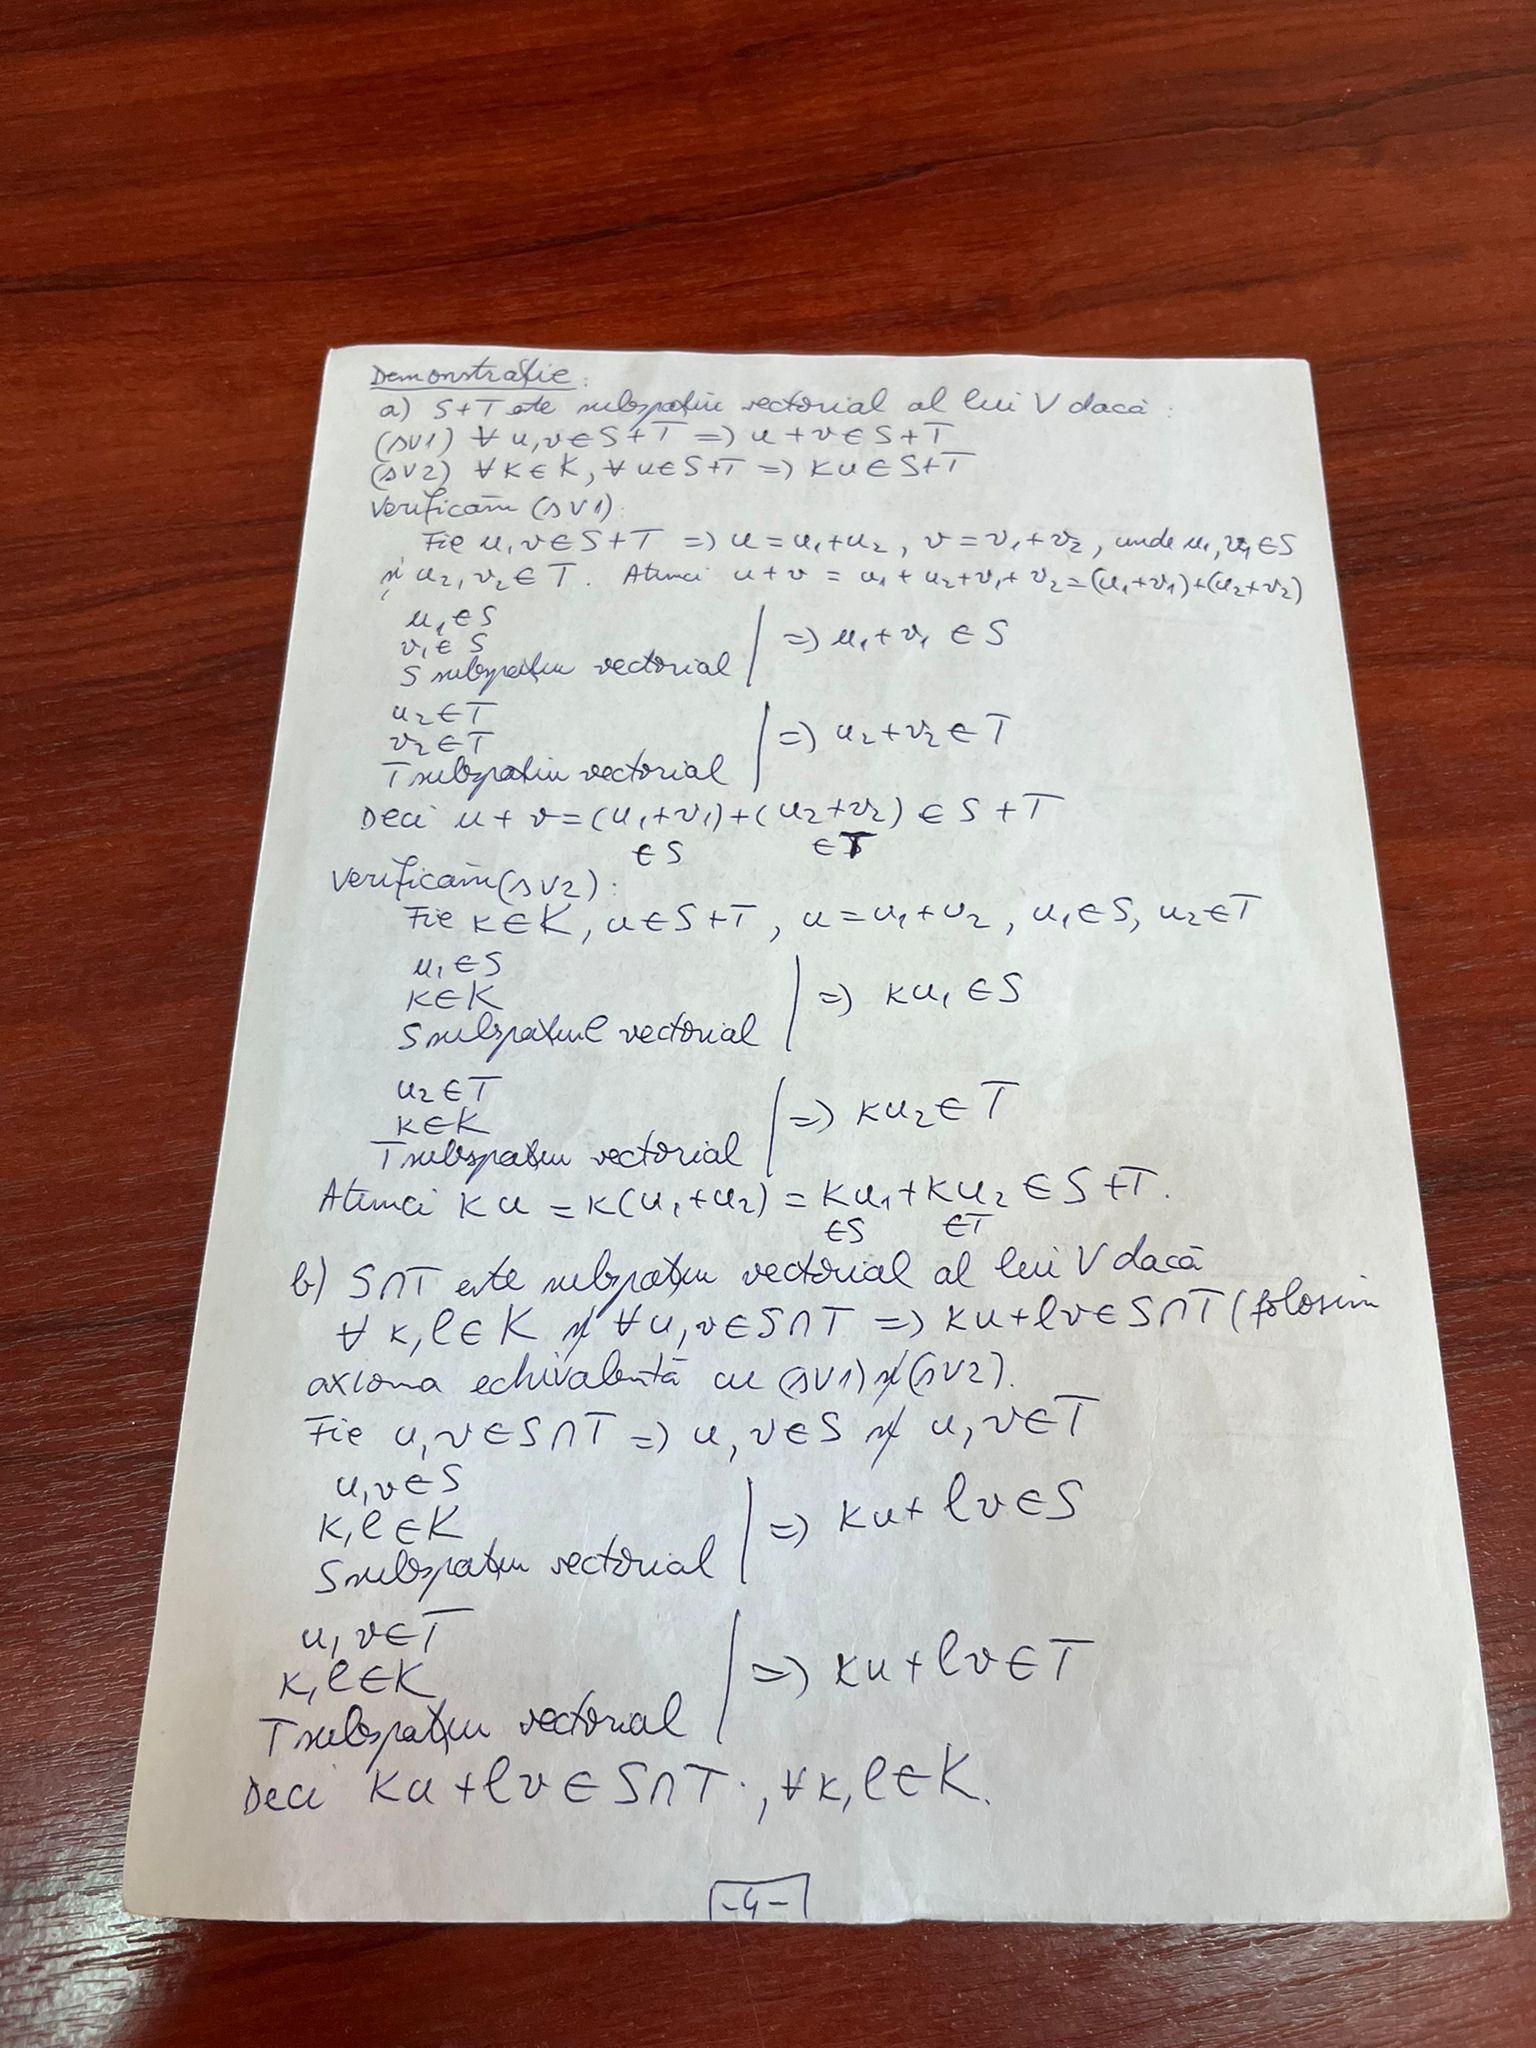 Demonstrație:
a) S+T este subspațiu vectorial al lui V dacă:
(SV1) ∀ u,v∈S+T => u+v∈S+T
(SV2) ∀ k∈K, ∀ u∈S+T => ku∈S+T
Verificăm (SV1):
Fie u,v∈S+T => u=u₁+u₂, v=v₁+v₂, unde u₁,v₁∈S
și u₂,v₂∈T. Atunci u+v = u₁+u₂+v₁+v₂=(u₁+v₁)+(u₂+v₂)
u₁∈S
v₁∈S | => u₁+v₁ ∈S
S subspațiu vectorial
u₂∈T
v₂∈T | => u₂+v₂∈T
T subspațiu vectorial
Deci u+v=(u₁+v₁)+(u₂+v₂) ∈ S+T
∈S ∈T
Verificăm (SV2):
Fie k∈K, u∈S+T, u=u₁+u₂, u₁∈S, u₂∈T
u₁∈S
k∈K | => ku₁∈S
S subspațiul vectorial
u₂∈T
k∈K | => ku₂∈T
T subspațiu vectorial
Atunci ku = k(u₁+u₂) = ku₁+ku₂ ∈S+T.
∈S ∈T
b) S∩T este subspațiu vectorial al lui V dacă
∀ k,l∈K și ∀u,v∈S∩T => ku+lv∈S∩T (folosim
axioma echivalentă cu (SV1) și (SV2).
Fie u,v∈S∩T => u,v∈S și u,v∈T
u,v∈S
k,l∈K | => ku+lv∈S
S subspațiu vectorial
u,v∈T
k,l∈K | => ku+lv∈T
T subspațiu vectorial
Deci ku+lv∈S∩T, ∀k,l∈K.
-4-